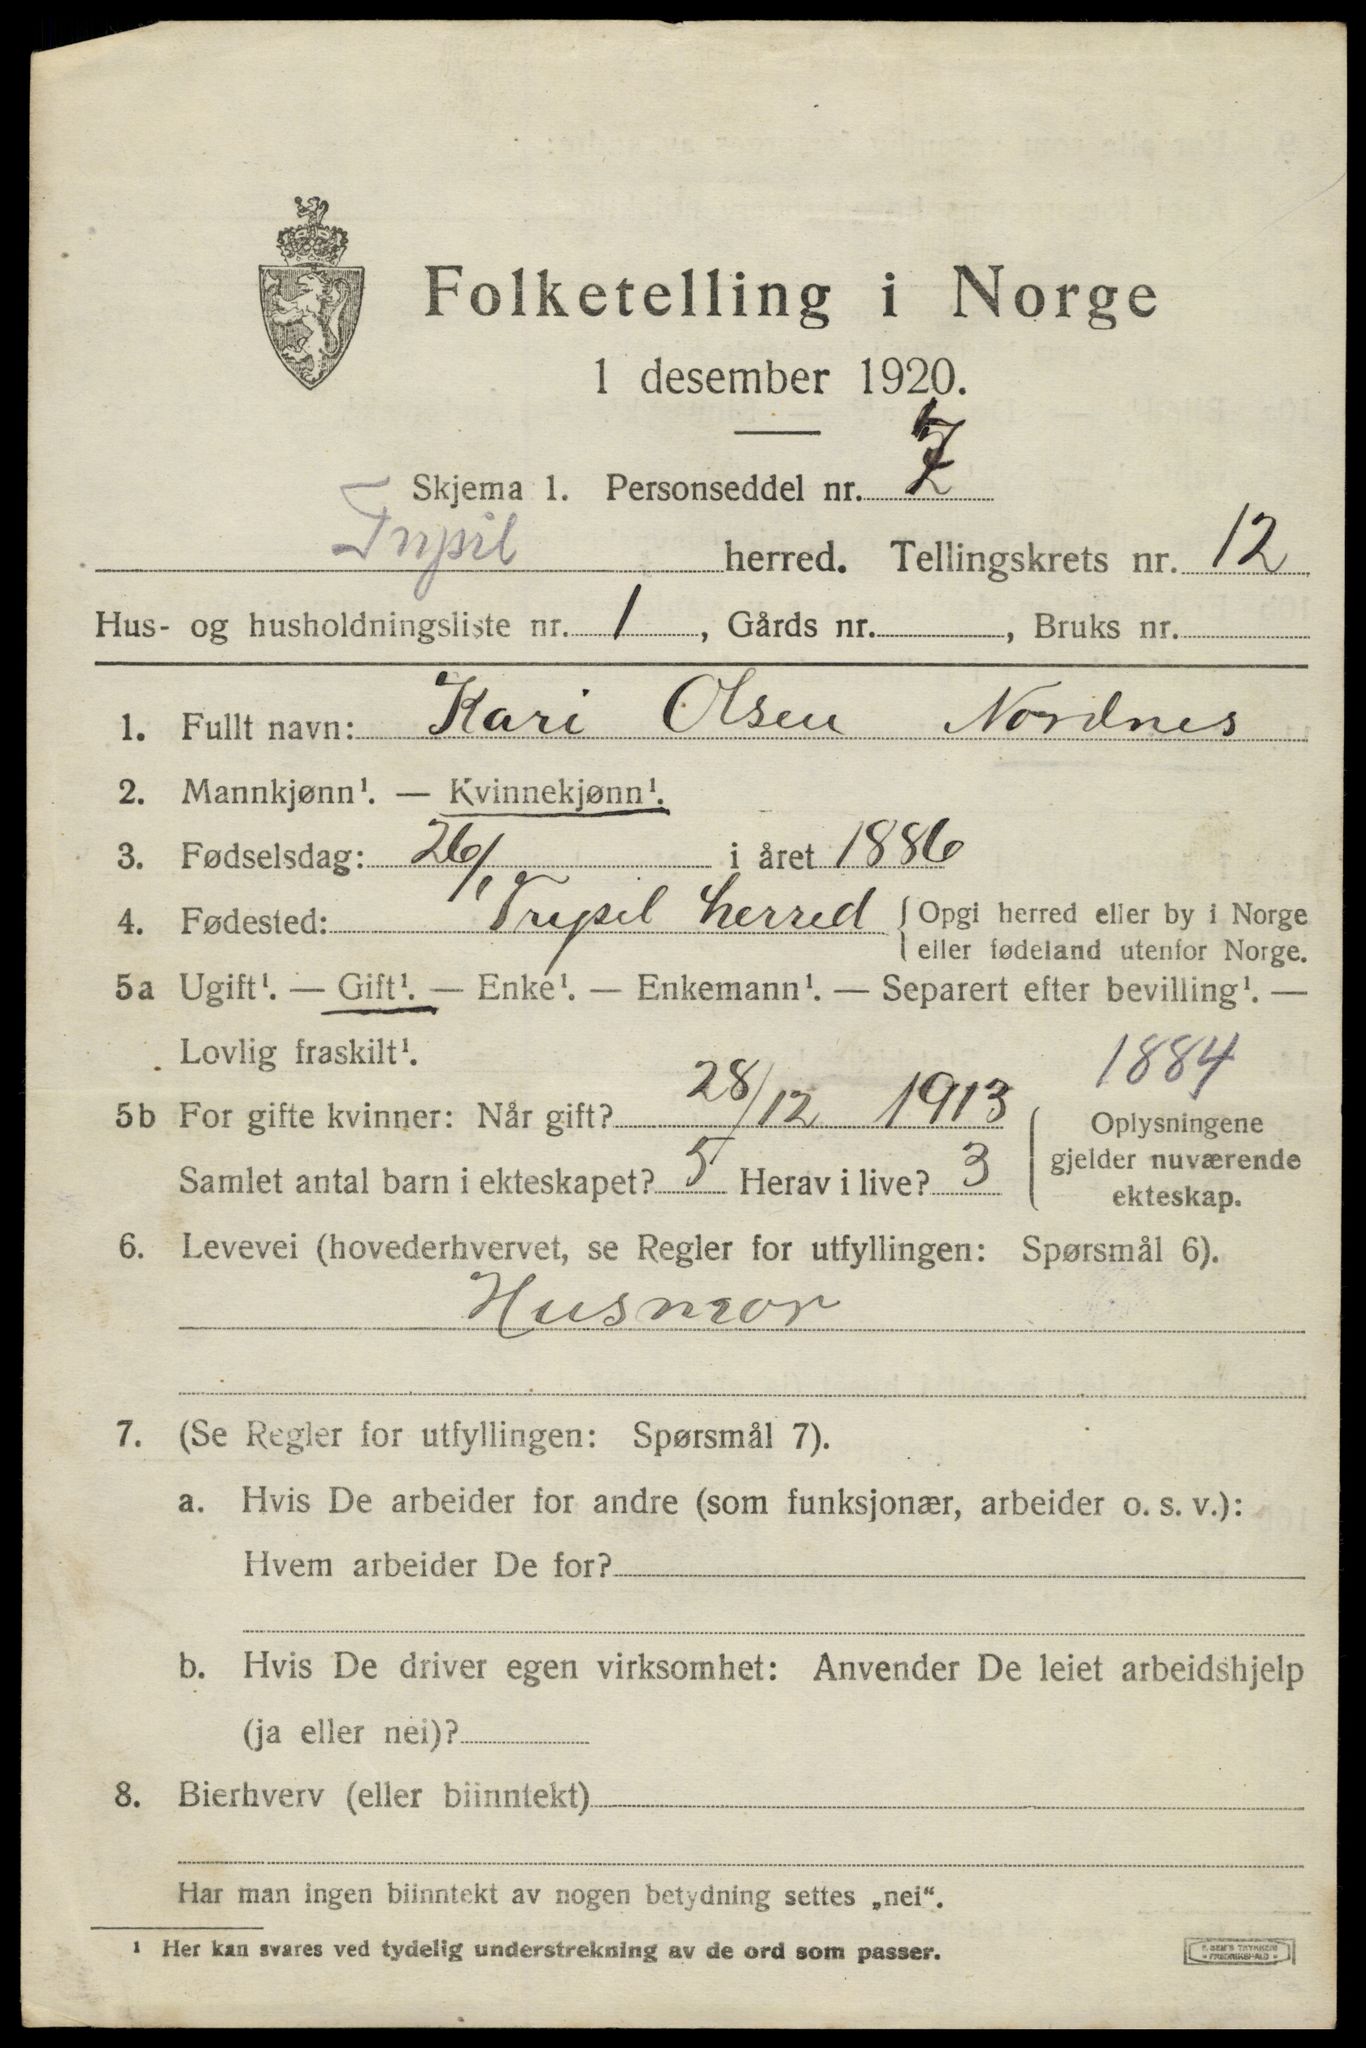 Folketelling i Norge
1 desember 1920.
Skjema 1. Personseddel nr. 2
Trysil herred. Tellingskrets nr. 12
Hus- og husholdningsliste nr. 1, Gårds nr. , Bruks nr.
1. Fullt navn: Kari Olsen Nordnes
2. Mannkjønn¹. — Kvinnekjønn¹.
3. Fødselsdag: 26/1 i året 1886
4. Fødested: Trysil herred { Opgi herred eller by i Norge
eller fødeland utenfor Norge.
5a Ugift¹. — Gift¹. — Enke¹. — Enkemann¹. — Separert efter bevilling¹. —
Lovlig fraskilt¹.
1884
5b For gifte kvinner: Når gift? 28/12 1913
Samlet antal barn i ekteskapet? 5 Herav i live? 3
Oplysningene
gjelder nuværende
ekteskap.
6. Levevei (hovederhvervet, se Regler for utfyllingen: Spørsmål 6).
Husmor
7. (Se Regler for utfyllingen: Spørsmål 7).
a. Hvis De arbeider for andre (som funksjonær, arbeider o. s. v.):
Hvem arbeider De for?
b. Hvis De driver egen virksomhet: Anvender De leiet arbeidshjelp
(ja eller nei)?
8. Bierhverv (eller biinntekt)
Har man ingen biinntekt av nogen betydning settes „nei“.
¹ Her kan svares ved tydelig understrekning av de ord som passer.